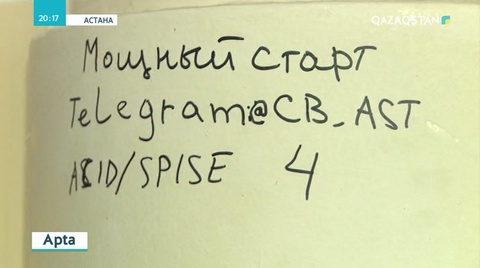 20:17 АСТАНА QAZAQSTAN
Мощный старт
Telegram@CB_AST
ASID/SPISE 4
Apta